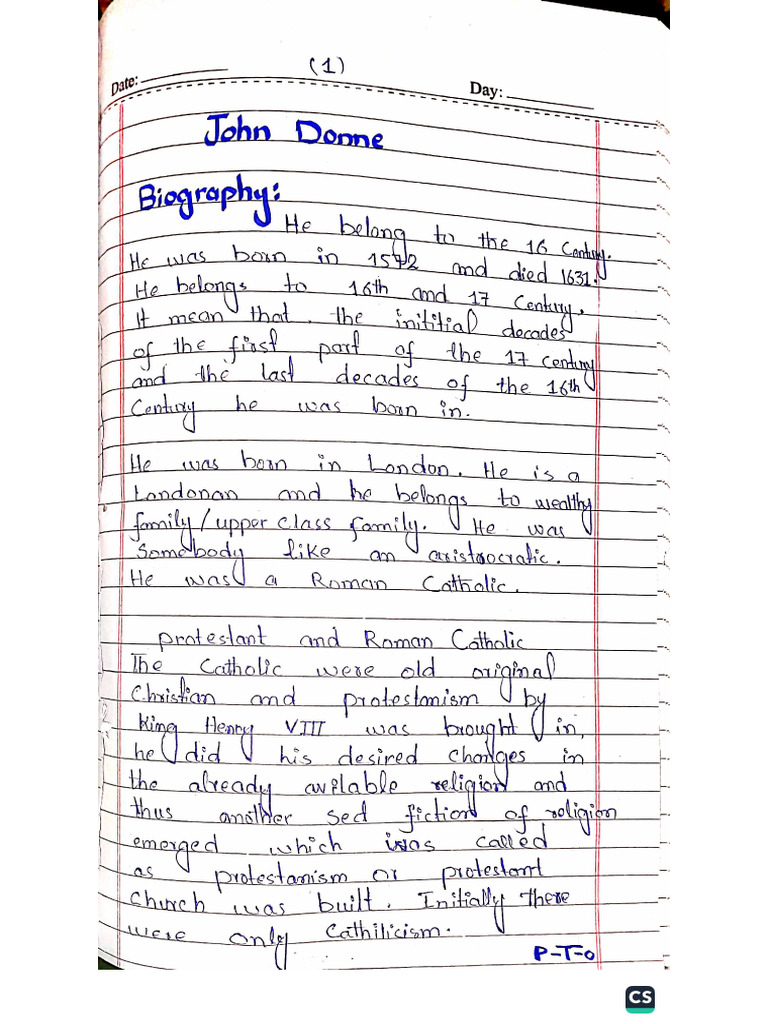 (1)
Date:
Day:
John Donne
Biography:
He belong to the 16 Century.
He was born in 1572 and died 1631.
He belongs to 16th and 17 Century.
It mean that the inititial decades
of the first part of the 17 century
and the last decades of the 16th
Century he was born in.
He was born in London. He is a
Londonan and he belongs to wealthy
family/upper class family. He was
Somebody like an aristrocratic.
He was a Roman Catholic.
protestant and Roman Catholic
The Catholic were old original
Christian and protestanism by
King Henry VIII was brought in,
he did his desired changes in
the already available religion and
thus another sed fiction of religion
emerged which was called
as protestanism or protestant
church was built. Initially there
were only Cathilicism.
P-T-O
CS